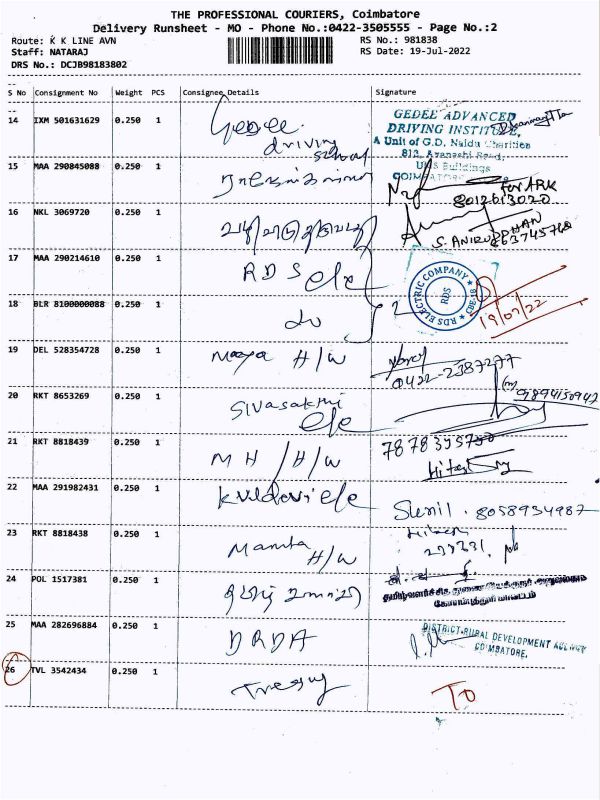 THE PROFESSIONAL COURIERS, Coimbatore
Delivery Runsheet - MO - Phone No.:0422-3505555 - Page No.:2
Route: K K LINE AVN
RS No.: 981838
Staff: NATARAJ
RS Date: 19-Jul-2022
DRS No.: DCJB98183802
S No Consignment No Weight PCS Consignee Details Signature
14 IXM 501631629 0.250 1 Gedee
driving
school
GEDEE ADVANCED
DRIVING INSTITUTE,
A Unit of G.D. Naidu Charities
812, Avanashi Road,
UMS Buildings
COIMBATORE
15 MAA 290845088 0.250 1
for ARK
8012613020
16 NKL 3069720 0.250 1
S. ANIRUDDHAN
17 MAA 290214610 0.250 1 RDS ele
RDS ELECTRIC COMPANY
RDS
CBE-18
18 BLR 8100000088 0.250 1 do } 2
19/07/22
19 DEL 528354728 0.250 1 Maya H/W
0422-2387277
20 RKT 8653269 0.250 1 Sivasakthi
ele
9894150947
21 RKT 8818439 0.250 1 M H / H/W
Hitesh
22 MAA 291982431 0.250 1 Kuldevi ele
Sunil. 8058934987
23 RKT 8818438 0.250 1 Mamta
H/W
24 POL 1517381 0.250 1
தமிழ்
25 MAA 282696884 0.250 1 DRDA
DISTRICT RURAL DEVELOPMENT AGENCY
COIMBATORE.
26 TVL 3542434 0.250 1
TO